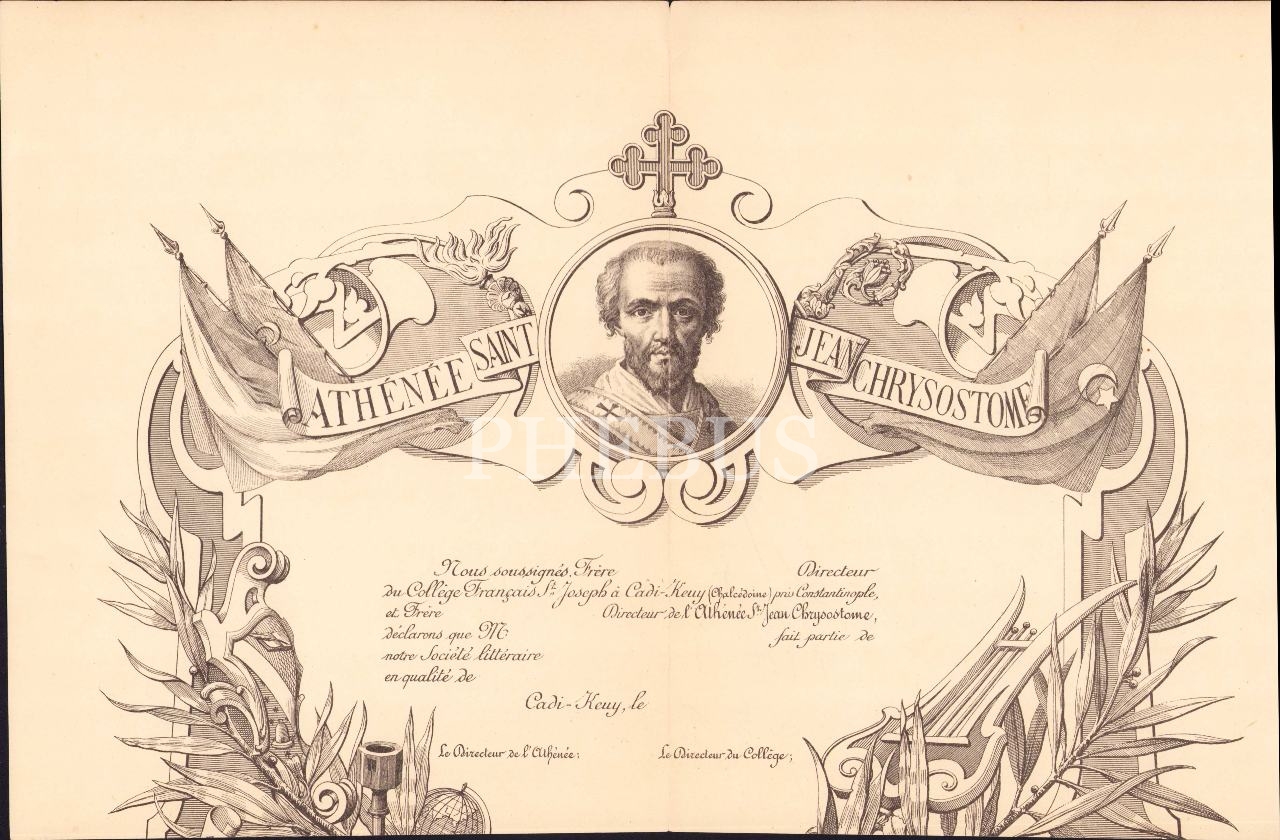 ATHÉNÉE SAINT JEAN CHRYSOSTOME
PHEBUS
Nous soussignés, Frère Directeur
du Collège Français St. Joseph à Cadi-Keuy (Chalcédoine) près Constantinople,
et Frère Directeur de l'Athénée St. Jean Chrysostome,
déclarons que M fait partie de
notre Société littéraire
en qualité de
Cadi-Keuy, le
Le Directeur de l'Athénée: Le Directeur du Collège;